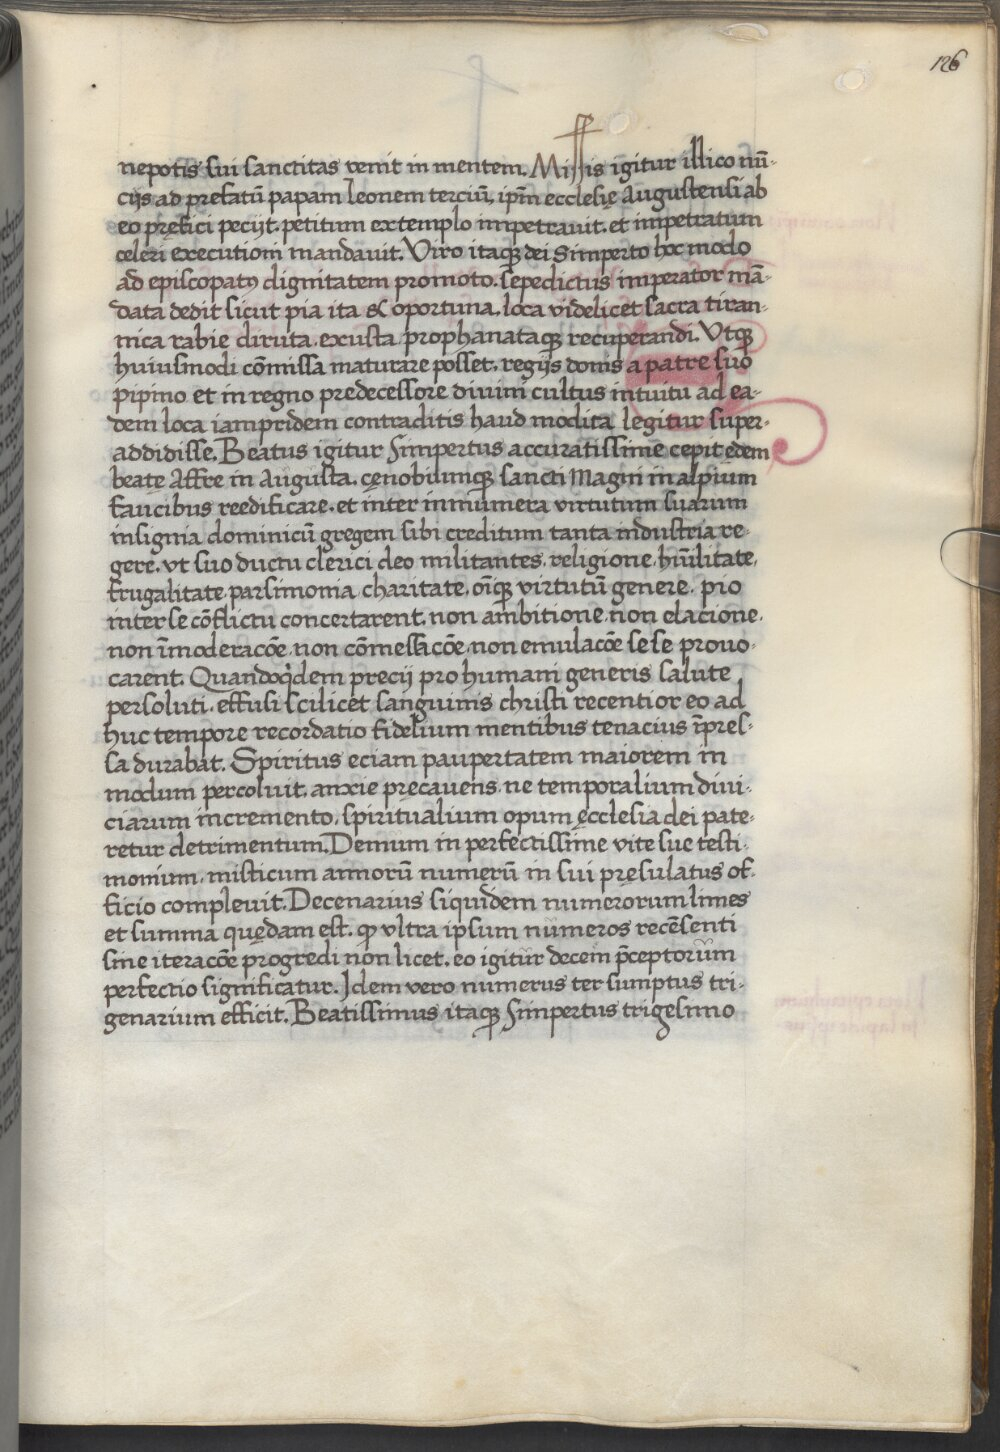 126
nepotis sui sanctitas venit in mentem. Missis igitur illico nū-
cijs ad prefatū papam Leonem terciū, ipm̄ ecclesię Augustensi ab
eo pręfici pecijt. petitum extemplo impetravit. et impetratum
celeri executioni mandauit. Viro itaqꝫ dei Simperto hoc modo
ad episcopatꝰ dignitatem promoto. sepedictus imperator mā-
data dedit sicut pia ita & oportuna. loca videlicet sacra tiran-
nica rabie diruta. exusta. prophanataqꝫ recuperandi. Vtqꝫ
huiusmodi cōmissa maturare posset. regijs donis a patre suo
pipino et in regno predecessore divini cultus intuitu ad ea-
dem loca iampridem contraditis haud modica legitur super-
addidisse. Beatus igitur Simpertus accuratissime cepit ędem
beatę Affre in Augusta. cęnobiumqꝫ sancti Magni in alpium
faucibus reedificare. et inter innumera virtutum suarum
insignia dominicū gregem sibi creditum tanta industria re-
gere. vt suo ductu clerici deo militantes. religione. hūilitate.
frugalitate. parsimonia. charitate. oīqꝫ virtutū genere. pio
inter se cōflictu concertarent. non ambitione. non elacione.
non īmoderacōe. non cōmessacōe. non emulacōe sese provo-
carent. Quandoqͥdem precij pro humani generis salute
persoluti. effusi scilicet sanguinis christi recentior eo ad
huc tempore recordatio fidelium mentibus tenacius īpres-
sa durabat. Spiritus eciam paupertatem maiorem in
modum percoluit. anxie pręcavens. ne temporalium divi-
ciarum incremento. spiritualium opum ęcclesia dei pate-
retur detrimentum. Demum in perfectissime vite sue testi-
monium. misticum annorū numerū in sui pręsulatus of-
ficio complevit. Decenarius siquidem numerorum limes
et summa quędam est. ꝙ vltra ipsum numeros recēsenti
sine iteracōe progredi non licet. eo igitur decem p̄ceptorum
perfectio significatur. Idem vero numerus ter sumptus tri-
genarium efficit. Beatissimus itaqꝫ Simpertus trigesimo